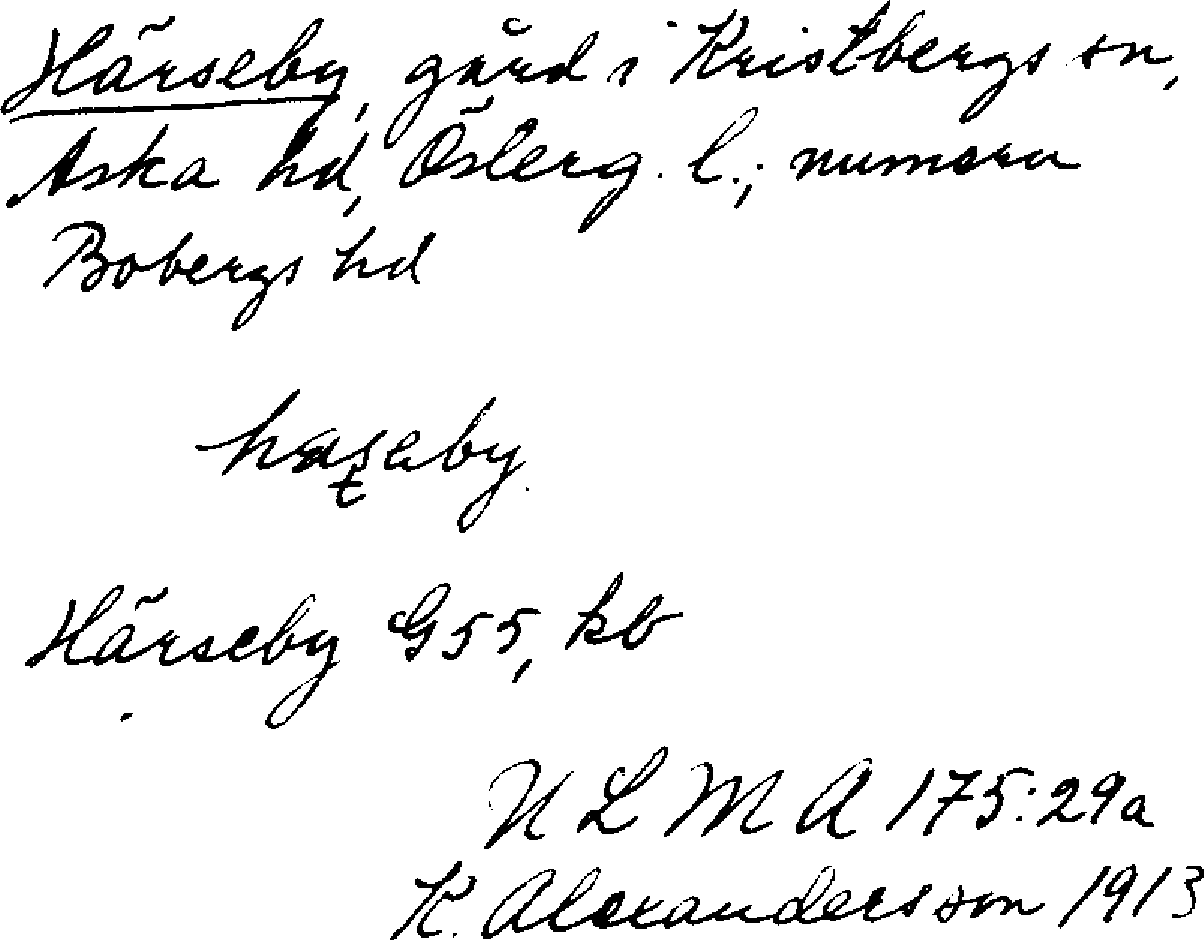 Härseby, gård i Kristbergs sn,
Aska hd, Österg. l.; numera
Bobergs hd
Härseby G55, kb
ULMA 175:29a
K. Alexandersson 1913